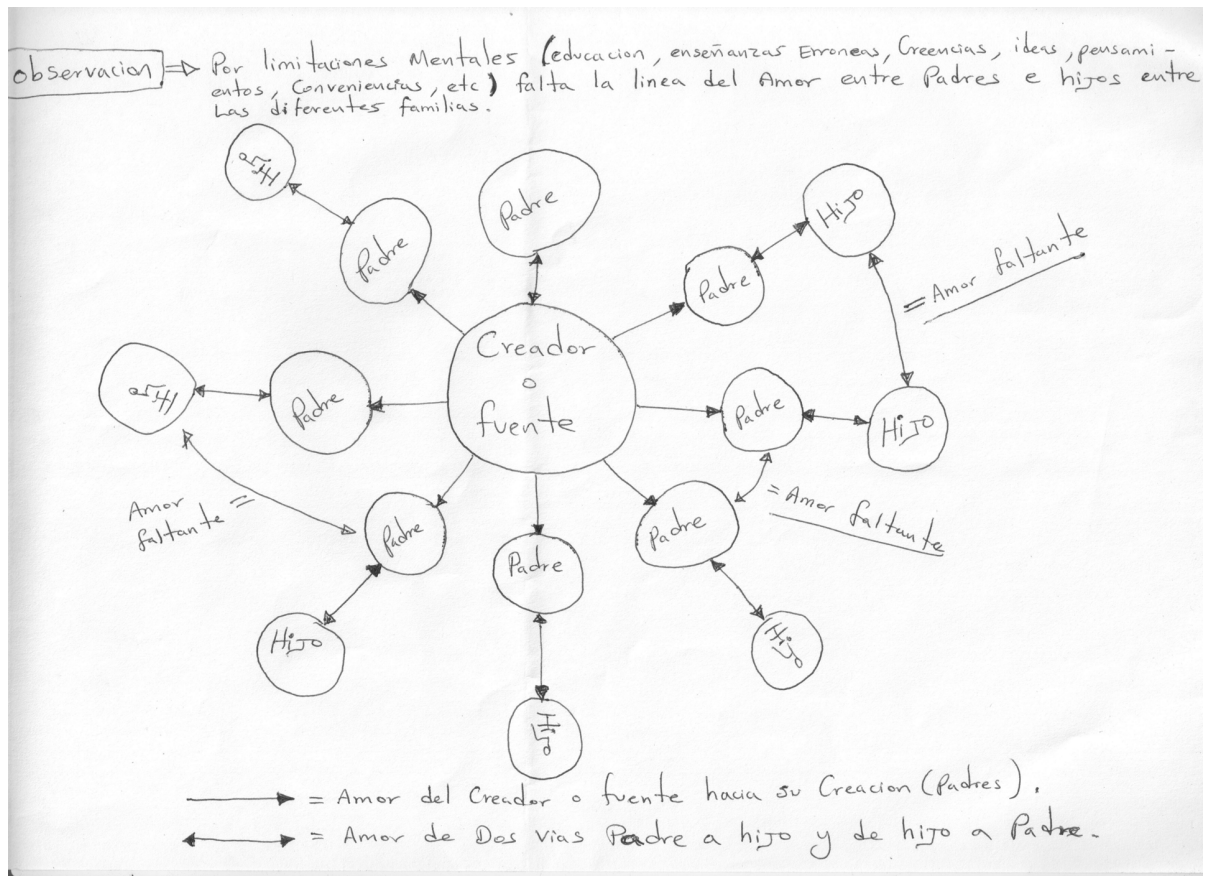 observacion => Por limitaciones Mentales (educacion, enseñanzas Erroneas, Creencias, ideas, pensami-
entos, Conveniencias, etc) falta la linea del Amor entre Padres e hijos entre
Las diferentes familias.
Hijo
Padre
Padre
Padre
Hijo
= Amor faltante
Creador
o
fuente
Hijo
Padre
Padre
Hijo
Amor
faltante =
Padre
Padre
Padre
= Amor faltante
Hijo
Hijo
Hijo
= Amor del Creador o fuente hacia su Creacion (Padres).
= Amor de Dos vias Padre a hijo y de hijo a Padre.